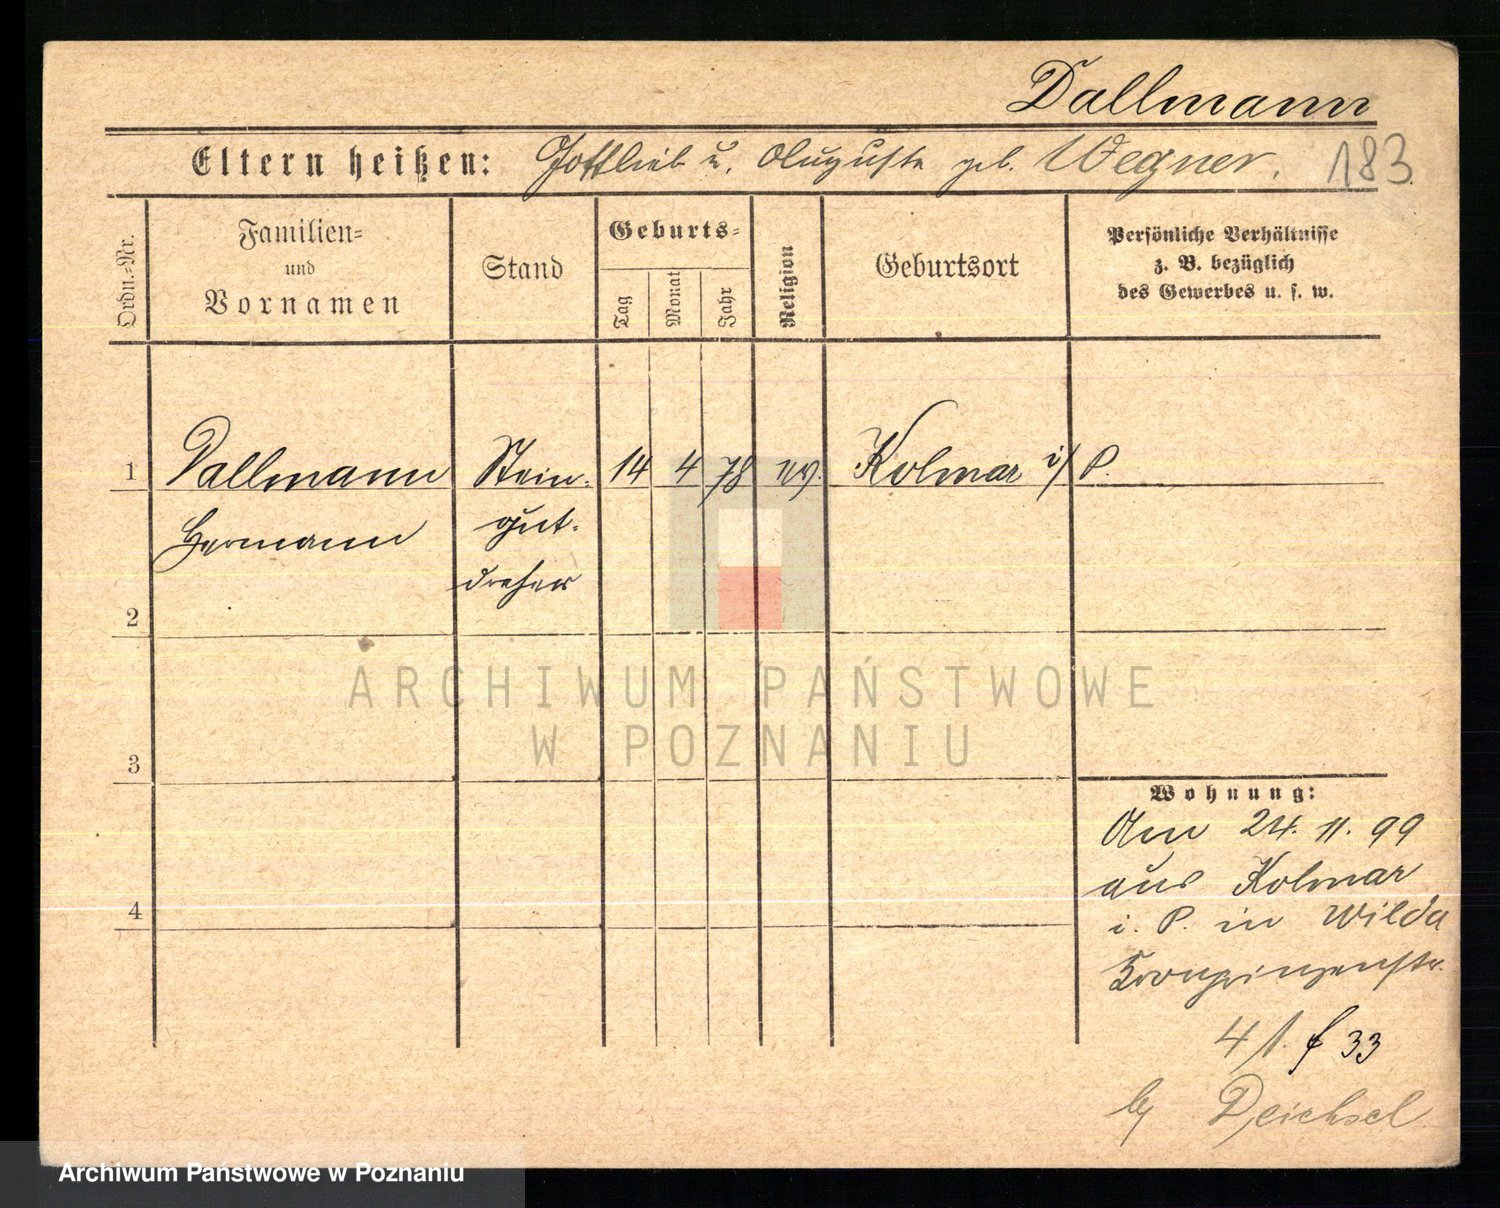 Dallmann
Eltern heißen: Gottlieb u. Auguste geb. Wegner. 183
Ordn.-Nr.
Familien-
und
Vornamen
Stand
Geburts-
Tag
Monat
Jahr
Religion
Geburtsort
Persönliche Verhältnisse
z. B. bezüglich
des Gewerbes u. s. w.
1 Dallmann Stein- 14 4 78 ev. Kolmar i/P.
Hermann gut-
dreher
2
3
4
Wohnung:
Am 24. 11. 99
aus Kolmar
i. P. in Wilda
Kronprinzenstr.
4/1. f 33
by Deichsel
ARCHIWUM PAŃSTWOWE
W POZNANIU
Archiwum Państwowe w Poznaniu